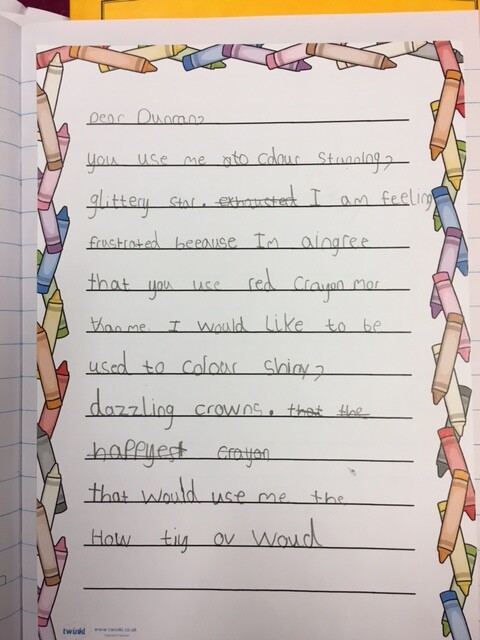 Dear Duncan,
you use me to colour stunning,
glittery star. exhausted I am feeling
frustrated beeause Im aingree
that you use red Crayon mor
than me. I would like to be
used to colour shiny,
dazzling crowns. that the
happyest crayon
that would use me the
How tiy ov Woud
twinkl www.twinkl.co.uk